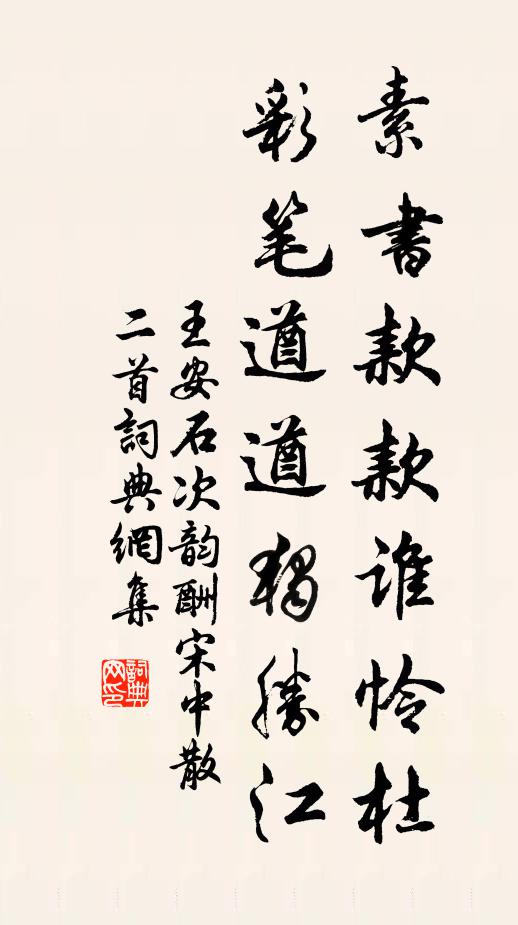 素書款款誰怜杜
彩笔遒遒獨勝江
王安石次韵酬宋中散
二首詞典網集
詞典网印